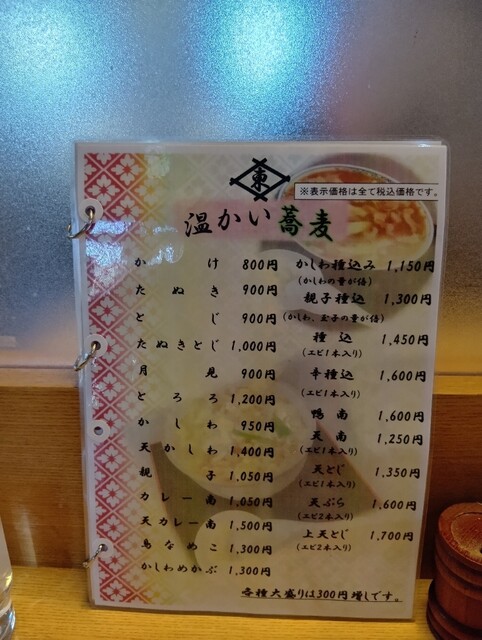 東
※表示価格は全て税込価格です。
温かい蕎麦
かけ 800円
たぬき 900円
とじ 900円
たぬきとじ 1,000円
月見 900円
とろろ 1,200円
かしわ 950円
天かしわ 1,400円
親子 1,050円
カレー南 1,050円
天カレー南 1,500円
鳥なめこ 1,300円
かしわめかぶ 1,300円
かしわ種込み 1,150円
(かしわの量が倍)
親子種込 1,300円
(かしわ、玉子の量が倍)
種込 1,450円
(エビ1本入り)
辛種込 1,600円
(エビ1本入り)
鴨南 1,600円
天南 1,250円
(エビ1本入り)
天とじ 1,350円
(エビ1本入り)
天ぷら 1,600円
(エビ2本入り)
上天とじ 1,700円
(エビ2本入り)
各種大盛りは300円増しです。